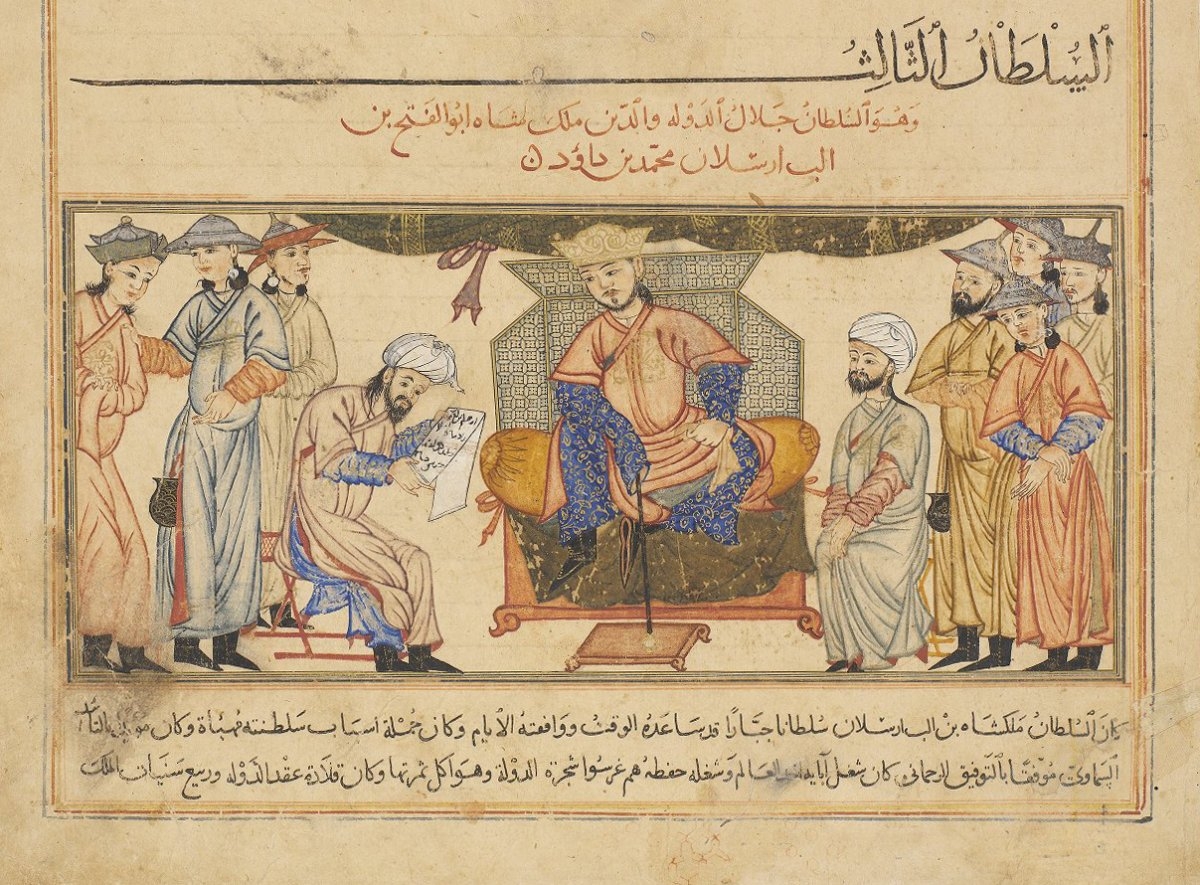 السُلْطَانُ الثَّالِثُ
وَهُوَ السُلطانُ جَلالُ الدَوْله والدّين ملك شاه ابوالفَتْح بن
الب ارسلان محمّد بن داؤد
كانَ السُلطانُ مَلكشاه بن الب ارسلان سُلطانا جبَّارًا قد ساعَدهُ الوقتُ ووافقتهُ الايام وكان جُمْلة اسبَاب سَلطنته مُهيَّأة وكان بالتأ
السَماويّ مُوَفّقا بالتوفيق الرحمانى كان شغل آبايه العالم وشغله حفظه هُم غرسُوا شجرة الدولة وهوَ اكل ثمرتها وكان قلادة عقد الدَوله وربيع الملك